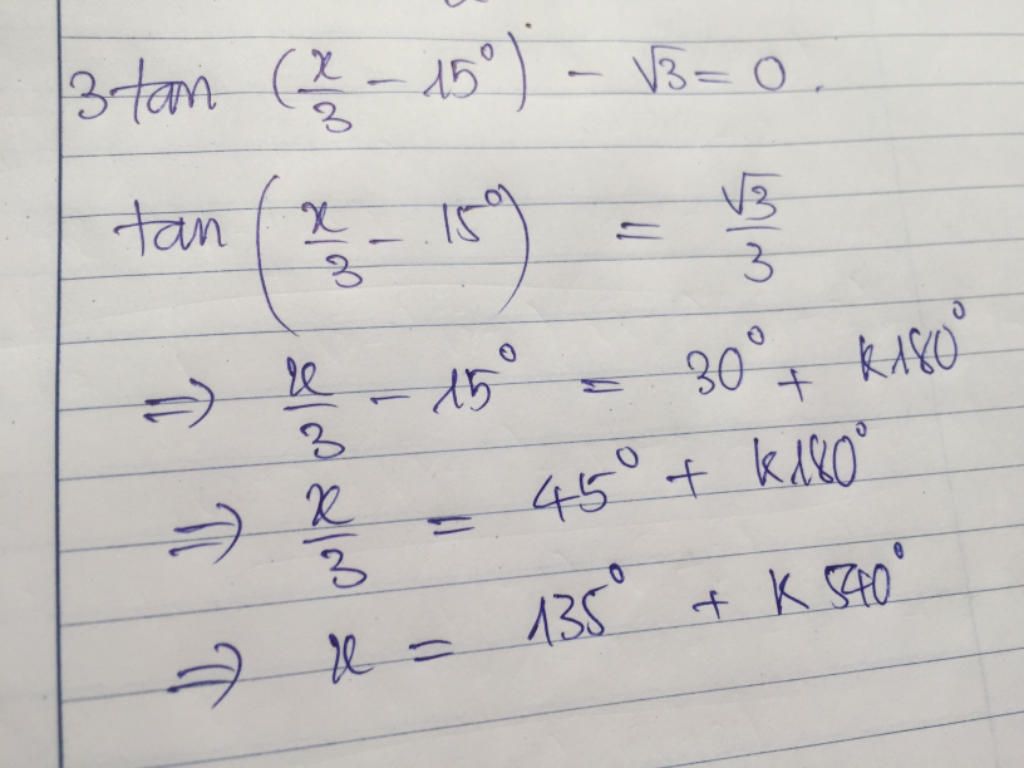 3 tan (x/3 - 15°) - √3 = 0.
tan (x/3 - 15°) = √3/3
⇒ x/3 - 15° = 30° + k180°
⇒ x/3 = 45° + k180°
⇒ x = 135° + k540°